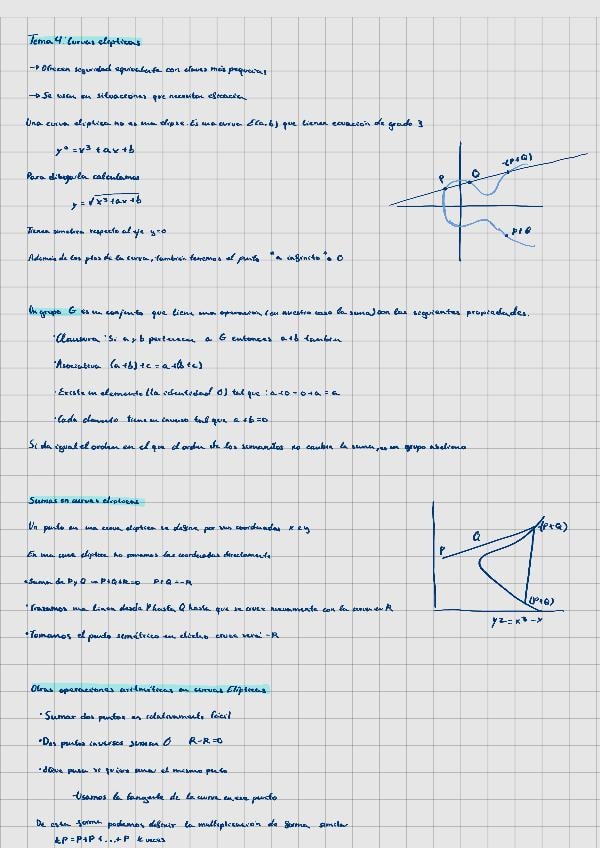 Tema 4: Curvas elípticas
→ Ofrecen seguridad equivalente con claves más pequeñas
→ Se usan en situaciones que necesitan eficiencia
Una curva elíptica no es una elipse. Es una curva E(a,b) que tienen ecuación de grado 3
y² = x³ + ax + b
Para dibujarla calculamos
y = √x³+ax+b
Tienen simetría respecto al eje y=0
Además de los ptos de la curva, también tenemos el punto "a infinito" O
P
Q
-(P+Q)
P+Q
Un grupo G es un conjunto que tiene una operación (en nuestro caso la suma) con las siguientes propiedades.
· Clausura: Si a y b pertenecen a G entonces a+b también
· Asociativa (a+b)+c = a+(b+c)
· Existe un elemento (la identidad 0) tal que: a+0 = 0+a = a
· Cada elemento tiene un inverso tal que a+b=0
Si da igual el orden en el que el orden de los sumandos no cambia la suma, es un grupo abeliano
Sumas en curvas elípticas
Un punto en una curva elíptica se define por sus coordenadas x e y
En una curva elíptica no sumamos las coordenadas directamente
· Suma de P y Q → P+Q+R=0 P+Q=-R
· Trazamos una línea desde P hasta Q hasta que se cruce nuevamente con la curva en R
· Tomamos el punto simétrico en dicho cruce será -R
P
Q
-(P+Q)
(P+Q)
y2 = x³ - x
Otras operaciones aritméticas en curvas Elípticas
· Sumar dos puntos es relativamente fácil
· Dos puntos inversos suman O R-R=O
· ¿Qué pasa si quiero sumar el mismo punto
-Usamos la tangente de la curva en ese punto
De esta forma podemos definir la multiplicación de forma similar
kP = P+P+...+P k veces